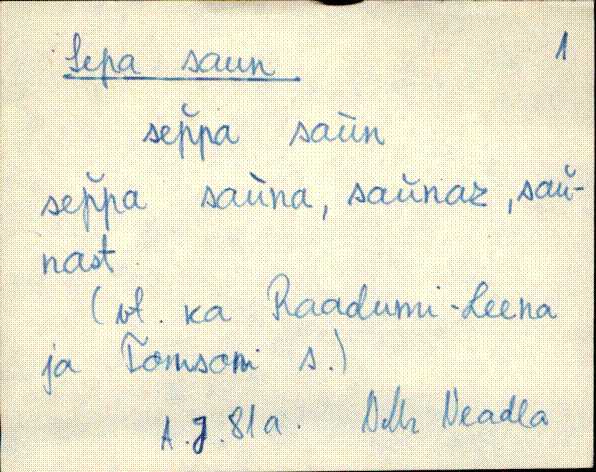 Sepa saun 1
sep̆pa saùn
sep̆pa saùna, saŭnaz, saŭ-
nast
(vt. ka Raadumi-Leena
ja Tomsoni s.)
A.J. 81a. Neadla